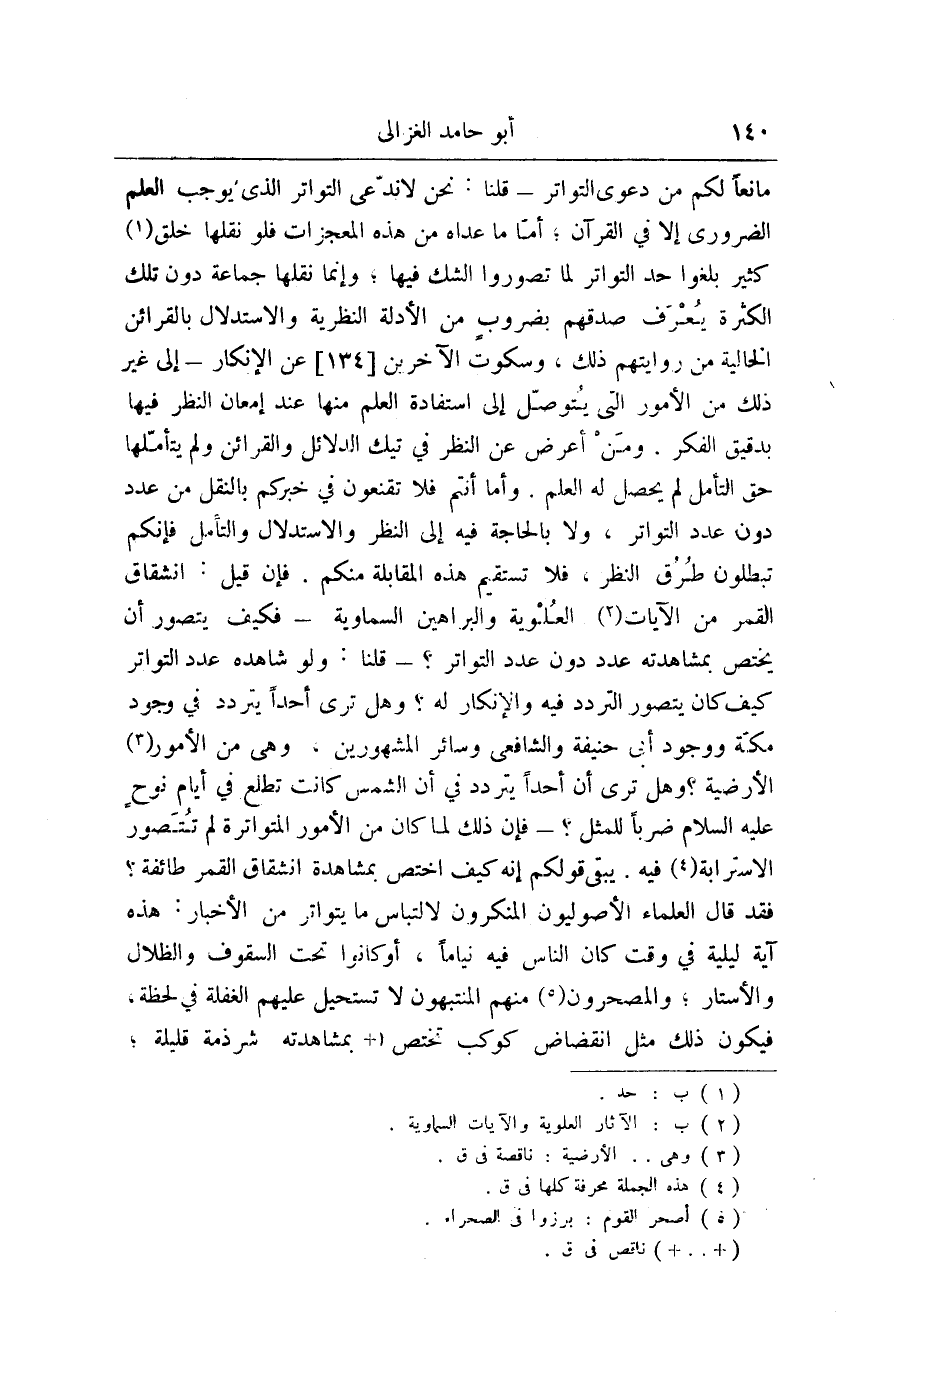 ١٤٠ أبو حامد الغزالى
مانعاً لكم من دعوى التواتر – قلنا : نحن لاندّعى التواتر الذى يوجب العلم
الضرورى إلا فى القرآن ؛ أمّا ما عداه من هذه المعجزات فلو نقلها خلق(١)
كثير بلغوا حد التواتر لما تصوروا الشك فيها ؛ وإنما نقلها جماعة دون تلك
الكثرة يُعْرَف صدقهم بضروبٍ من الأدلة النظرية والاستدلال بالقرائن
الحالية من روايتهم ذلك ، وسكوت الآخرين [١٣٤] عن الإنكار – إلى غير
ذلك من الأمور التى يُتوصّل إلى استفادة العلم منها عند إمعان النظر فيها
بدقيق الفكر . ومَنْ أعرض عن النظر فى تيك الدلائل والقرائن ولم يتأمّلها
حق التأمل لم يحصل له العلم . وأما أنتم فلا تقنعون فى خبركم بالنقل من عدد
دون عدد التواتر ، ولا بالحاجة فيه إلى النظر والاستدلال والتأمل فإنكم
تبطلون طُرُق النظر ، فلا تستقيم هذه المقابلة منكم . فإن قيل : انشقاق
القمر من الآيات(٢) العُلْوية والبراهين السماوية – فكيف يتصور أن
يختص بمشاهدته عدد دون عدد التواتر ؟ – قلنا : ولو شاهده عدد التواتر
كيف كان يتصور التردد فيه والإنكار له ؟ وهل ترى أحداً يتردد فى وجود
مكّة ووجود أبى حنيفة والشافعى وسائر المشهورين ، وهى من الأمور(٣)
الأرضية ؟ وهل ترى أن أحداً يتردد فى أن الشمس كانت تطلع فى أيام نوحٍ
عليه السلام ضرباً للمثل ؟ – فإن ذلك لما كان من الأمور المتواترة لم تُتَصور
الاسترابة(٤) فيه . يبقى قولكم إنه كيف اختص بمشاهدة انشقاق القمر طائفة ؟
فقد قال العلماء الأصوليون المنكرون لالتباس ما يتواتر من الأخبار : هذه
آية ليلية فى وقت كان الناس فيه نياماً ، أوكانوا تحت السقوف والظلال
والأستار ؛ والمصحرون(٥) منهم المنتبهون لا تستحيل عليهم الغفلة فى لحظة ،
فيكون ذلك مثل انقضاض كوكب تختص ١+ بمشاهدته شرذمة قليلة ؛
(١) ب : حد .
(٢) ب : الآثار العلوية والآيات السماوية .
(٣) وهى .. الأرضية : ناقصة فى ق .
(٤) هذه الجملة محرفة كلها فى ق .
(٥) أصحر القوم : برزوا فى الصحراء .
(+ .. +) ناقص فى ق .